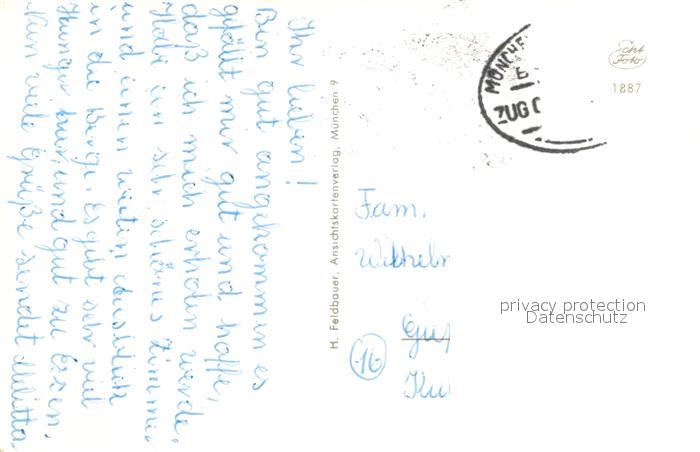 Ihr lieben!
Bin gut angekommen es
gefällt mir gut und hoffe,
daß ich mich erholen werde.
Habe ein sehr schönes Zimmer
und einen weiten Ausblick
in die Berge. Es gibt sehr viel
Hunger hier, und gut zu Essen.
Nun viele Grüße sendet Militta
H. Feldbauer, Ansichtskartenverlag, München 9
MÜNCHE
ZUG
Echt
Foto
1887
Fam.
Wilhelm
16
privacy protection
Datenschutz